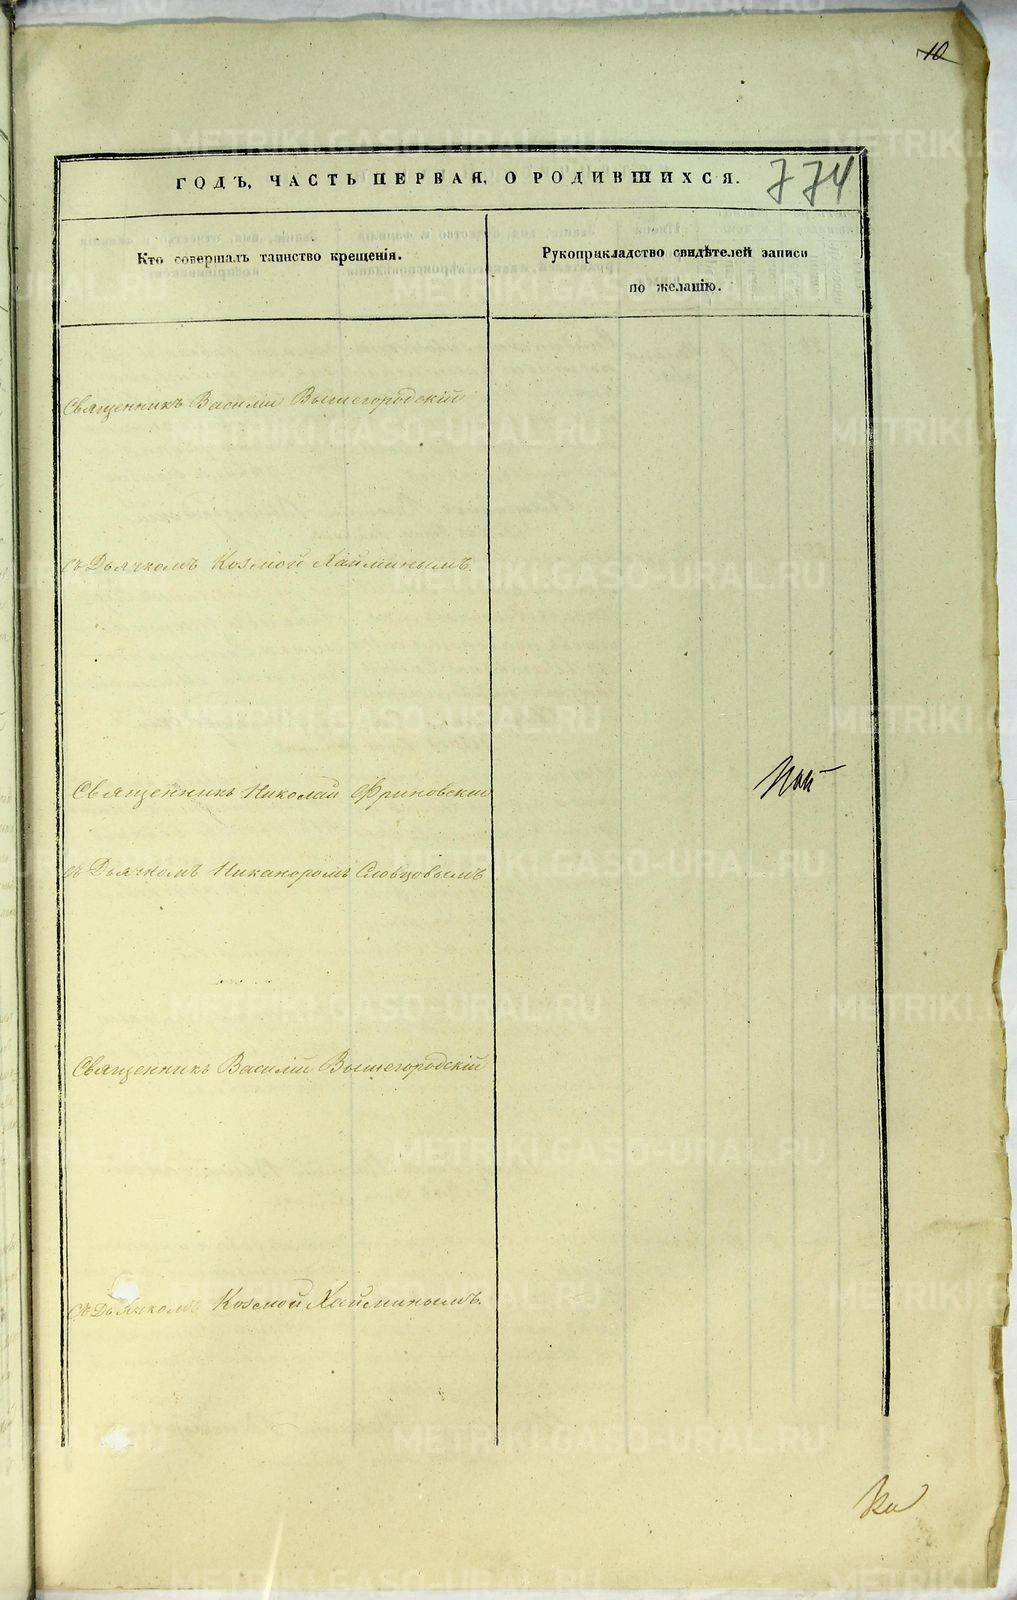 10
ГОДЪ, ЧАСТЬ ПЕРВАЯ, О РОДИВШИХСЯ.
774
Кто совершалъ таинство крещенія.
Рукоприкладство свидѣтелей записи
по желанію.
Священникъ Василій Вышегородскій
съ Дьячкомъ Козмой Хайминымъ.
Священникъ Николай Фриновскій
съ Дьячкомъ Никаноромъ Словцовымъ
Священникъ Василій Вышегородскій
съ Дьячкомъ Козмой Хайминымъ.
METRIKI.GASO-URAL.RU